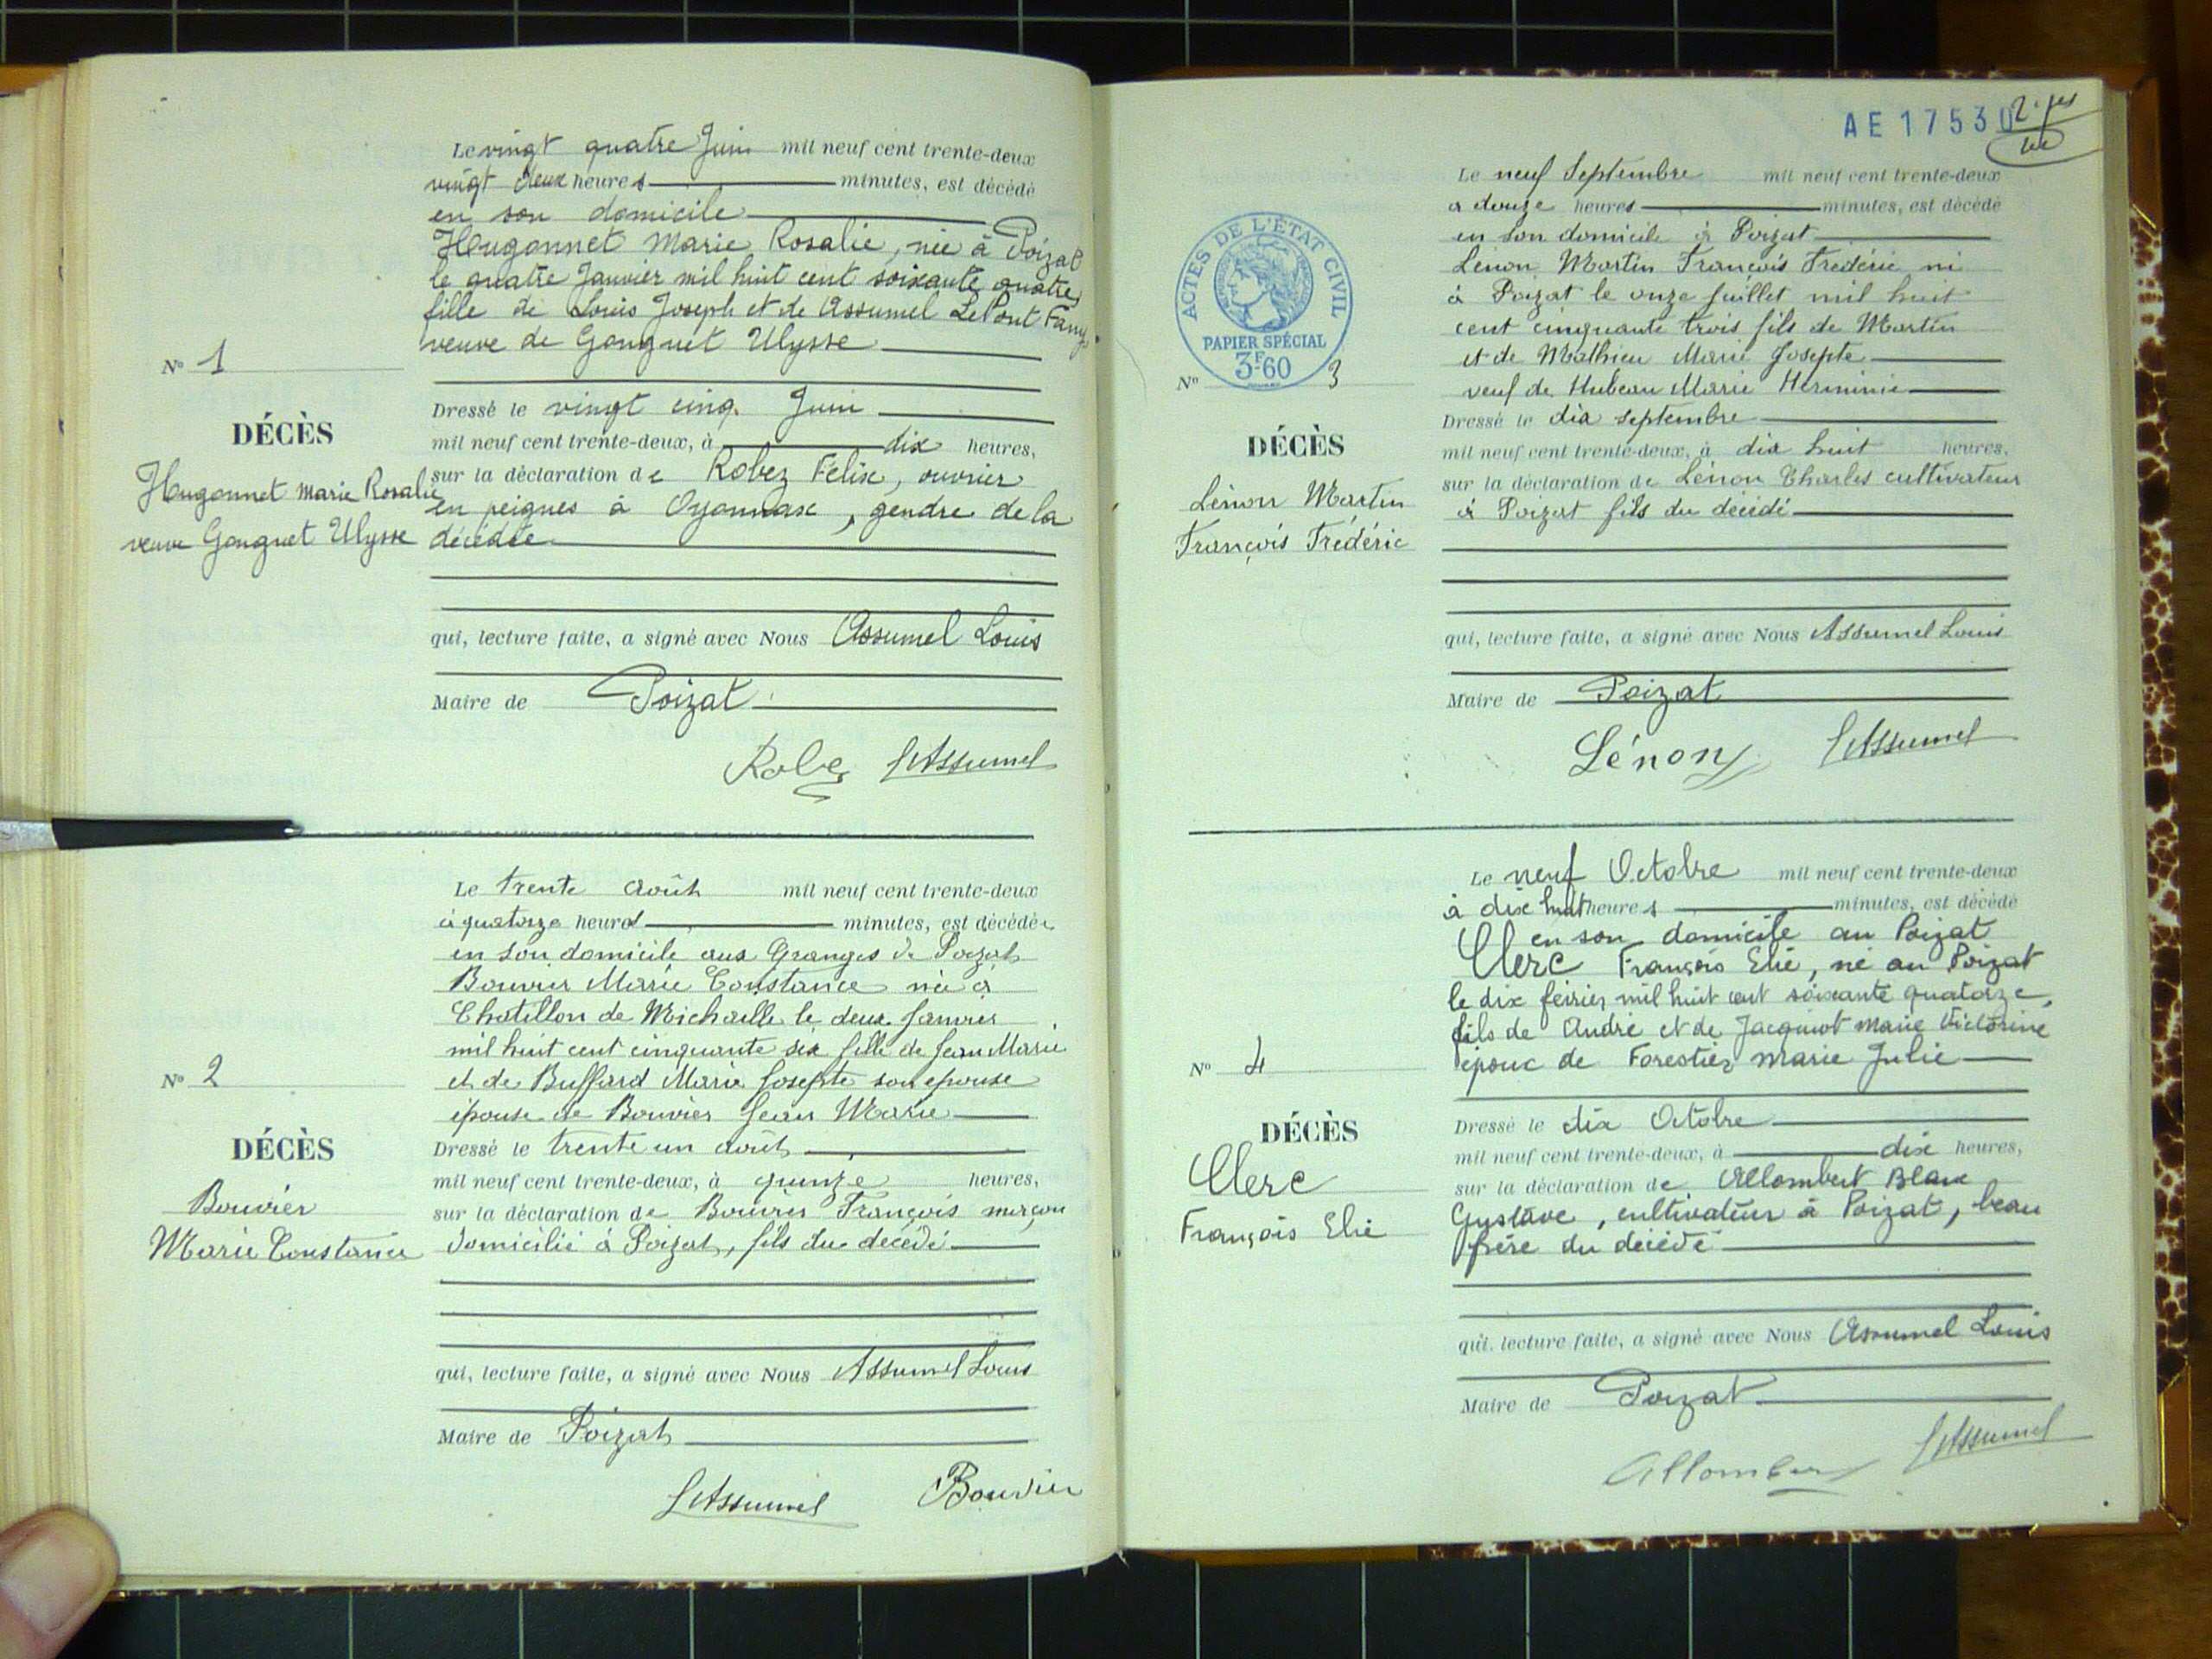 Le vingt quatre Juin mil neuf cent trente-deux
vingt deux heures minutes, est décédé
en son domicile
Hugonnet Marie Rosalie, née à Poizat
le quatre Janvier mil huit cent soixante quatre
fille de Louis Joseph et de Assumel LePont Fany
veuve de Gonguet Ulysse
N° 1
Dressé le vingt cinq Juin
DÉCÈS
mil neuf cent trente-deux, à dix heures,
Hugonnet Marie Rosalie
sur la déclaration de Robez Félix, ouvrier
veuve Gonguet Ulysse
en peignes à Oyonnax, gendre de la
décédée
qui, lecture faite, a signé avec Nous Assumel Louis
Maire de Poizat
Robez LAssumel
Le trente Août mil neuf cent trente-deux
à quatorze heures minutes, est décédée
en son domicile aux Granges de Poizat
Bouvier Marie Constance née à
Chatillon de Michaille le deux Janvier
mil huit cent cinquante six fille de Jean Marie
N° 2
et de Buffard Marie Josephte son épouse
épouse de Bouvier Jean Marie
DÉCÈS
Dressé le trente un août
Bouvier
mil neuf cent trente-deux, à quinze heures,
Marie Constance
sur la déclaration de Bouvier François maçon
domicilié à Poizat, fils du décédé
qui, lecture faite, a signé avec Nous Assumel Louis
Maire de Poizat
LAssumel Bouvier
AE 17530
ACTES DE L'ÉTAT CIVIL
PAPIER SPÉCIAL
3F60
Le neuf Septembre mil neuf cent trente-deux
à douze heures minutes, est décédé
en son domicile à Poizat
Lénon Martin François Frédéric né
à Poizat le onze juillet mil huit
cent cinquante trois fils de Martin
et de Mathieu Marie Josepte
N° 3
veuf de Hubeau Marie Herminie
Dressé le dix septembre
DÉCÈS
mil neuf cent trente-deux, à dix huit heures,
Lénon Martin
sur la déclaration de Lénon Charles cultivateur
François Frédéric
à Poizat fils du décédé
qui, lecture faite, a signé avec Nous Assumel Louis
Maire de Poizat
Lénon LAssumel
Le neuf Octobre mil neuf cent trente-deux
à dix huit heures minutes, est décédé
en son domicile au Poizat
Clerc François Elie, né au Poizat
le dix février mil huit cent soixante quatorze,
fils de André et de Jacquinot Marie Victorine
N° 4
époux de Forestier Marie Julie
DÉCÈS
Dressé le dix Octobre
Clerc
mil neuf cent trente-deux, à dix heures,
François Elie
sur la déclaration de Allombert Blanc
Gustave, cultivateur à Poizat, beau
frère du décédé
qui, lecture faite, a signé avec Nous Assumel Louis
Maire de Poizat
Allombert LAssumel